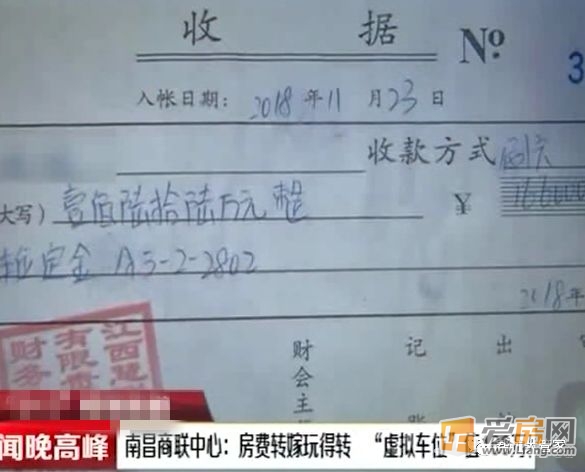 收 据 Nº
3
入帐日期: 2018 年 11 月 23 日
收款方式 刷卡
大写) 壹佰陆拾陆万元 整 ¥
定金 A3-2-2802
2018 年
江西
有限责
财务
财会主
记
出
闻晚高峰 南昌商联中心: 房费转嫁玩得转 “虚拟车位”
爱房网